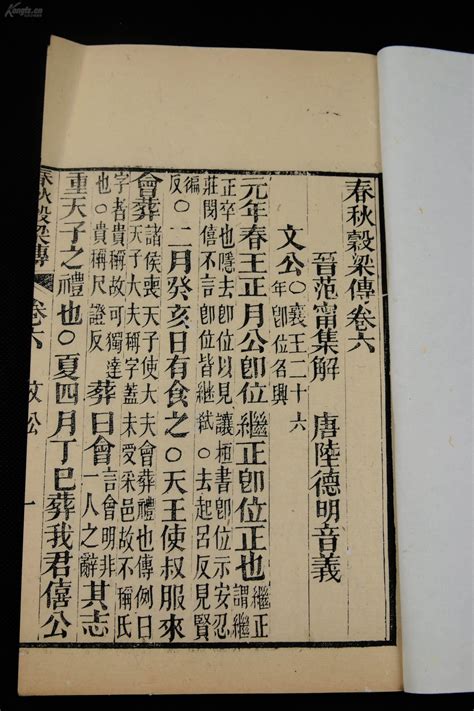 Kongfz.cn
春秋穀梁傳卷六
晉范甯集解　唐陸德明音義
文公○襄王二十六年卽位名興
元年春王正月公卽位繼正卽位正也繼正謂繼
正卒也隱去卽位以見讓桓書卽位示安忍莊閔僖不言卽位皆繼弑○去起呂反見賢
徧反○二月癸亥日有食之○天王使叔服來
會葬諸侯喪天子使大夫會葬禮也傳例曰天子大夫稱字蓋未受采邑故不稱氏
字者貴稱故可獨達也○貴稱尺證反葬曰會言會明非一人之辭其志
重天子之禮也○夏四月丁巳葬我君僖公
春秋穀梁傳　卷六　文公　一